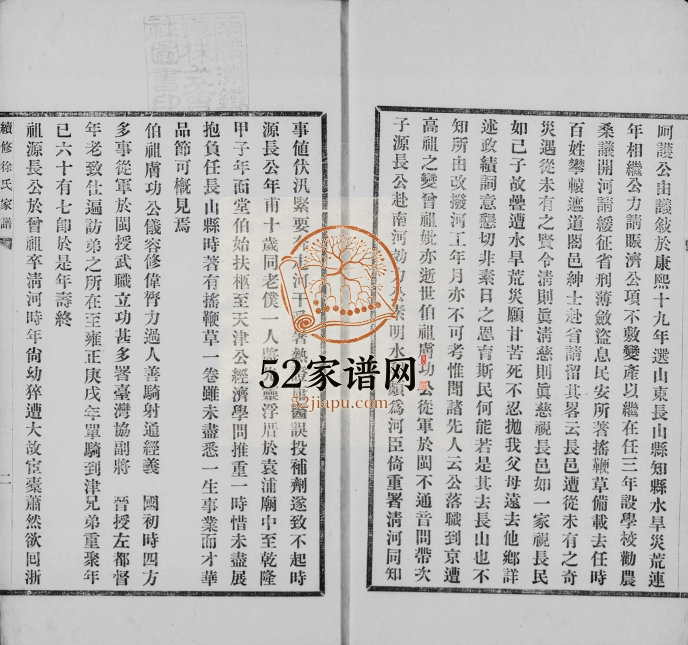 呵護公由議敍於康熙十九年選山東長山縣知縣水旱災荒連
年相繼公力請賑濟公項不敷變產以繼在任三年設學校勸農
桑議開河請緩征省刑薄斂盜息民安所著搖鞭草備載去任時
百姓攀轅遮道闔邑紳士赴省請留其畧云長邑遭從未有之奇
災遇從未有之賢令清則眞清慈則眞慈視長邑如一家視長民
如己子故疊遭水旱荒災願甘苦死不忍拋我父母遠去他鄉詳
述政績詞意懇切非素日之恩育斯民何能若是其去長山也不
知所由改撥河工年月亦不可考惟聞諸先人云公落職到京遭
高祖之變曾祖妣亦逝世伯祖膚功公從軍於閩不通音問帶次
子源長公赴南河 明水 爲河臣倚重署清河同知
事値伏汛緊要 走河干 誤投補劑遂致不起時
源長公年甫十歲同老僕一人 靈浮厝於袁浦廟中至乾隆
甲子年面堂伯始扶柩至天津公經濟學問推重一時惜未盡展
抱負任長山縣時著有搖鞭草一卷雖未盡悉一生事業而才華
品節可概見焉
伯祖膚功公儀容修偉膂力過人善騎射通經義 國初時四方
多事從軍於閩授武職立功甚多署臺灣協副將 晉授左都督
年老致仕遍訪弟之所在至雍正庚戌年單騎到津兄弟重聚年
已六十有七卽於是年壽終
祖源長公於曾祖卒淸河時年尙幼猝遭大故宦橐蕭然欲回浙
續修徐氏家譜
一
52家谱网
52jiapu.com